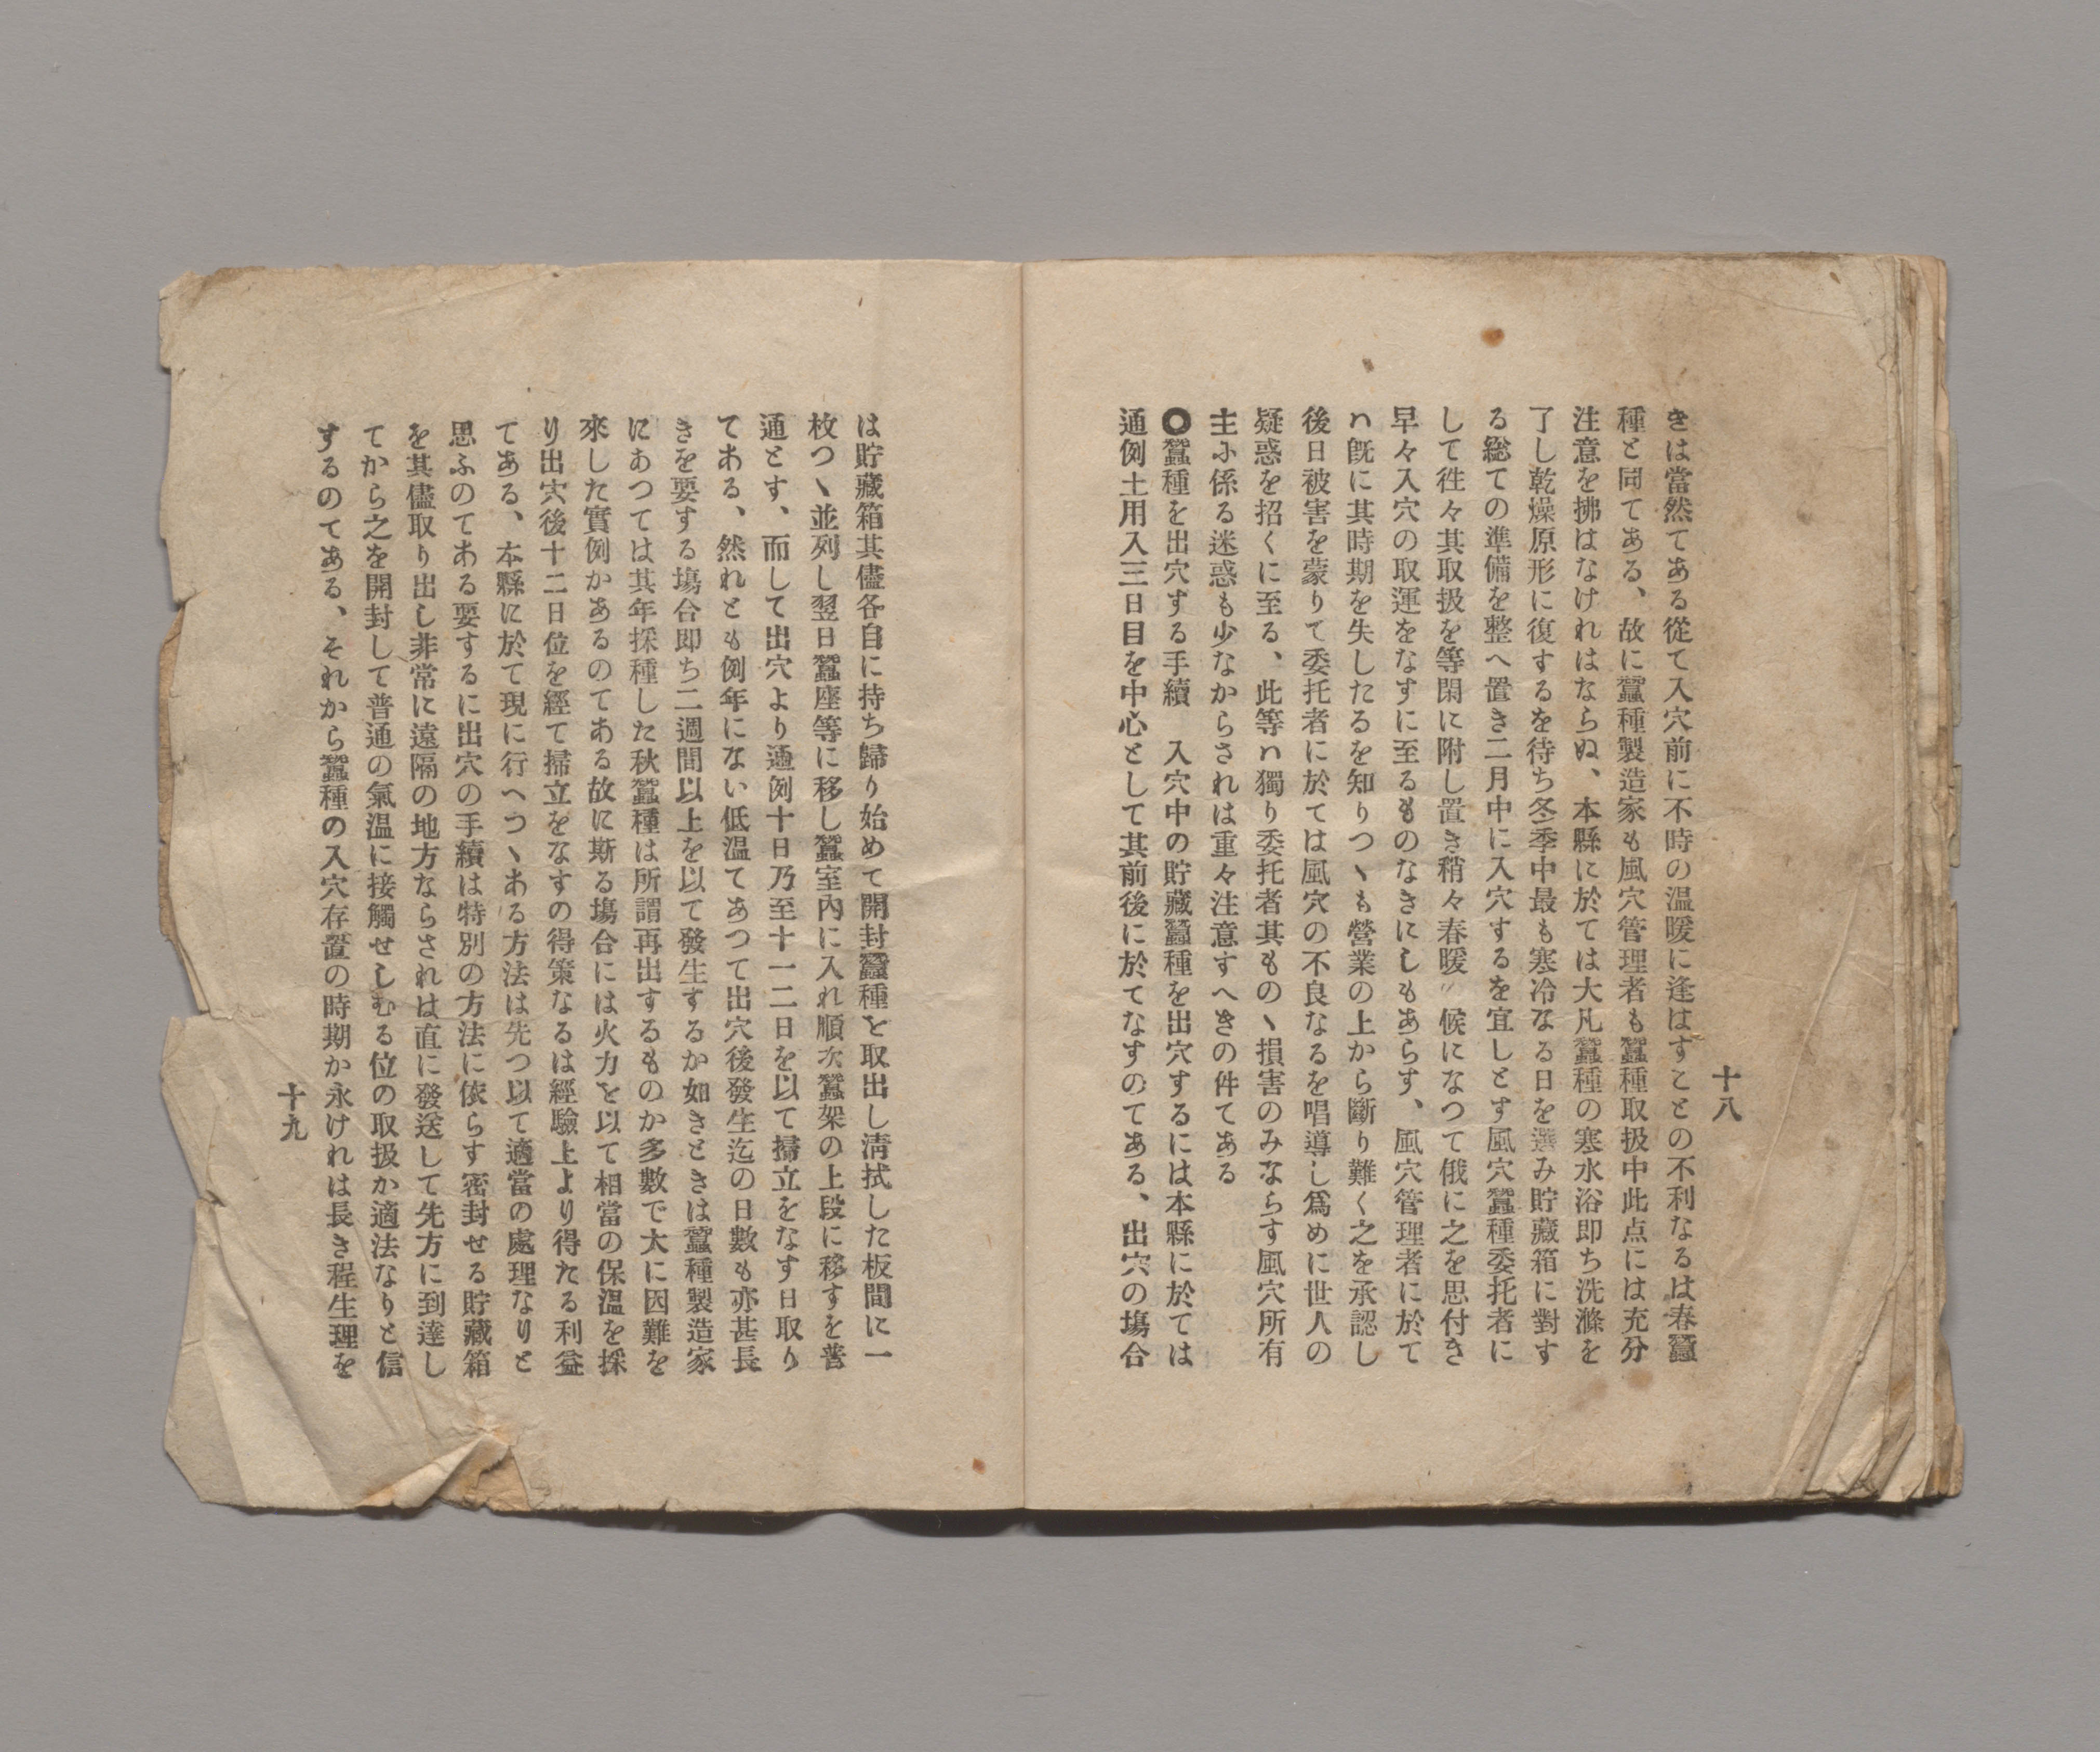 十八
きは當然てある從て入穴前に不時の溫暖に逢はすことの不利なるは春蠶
種と同てある、故に蠶種製造家も風穴管理者も蠶種取扱中此点には充分
注意を拂はなけれはならぬ、本縣に於ては大凡蠶種の寒水浴即ち洗滌を
了し乾燥原形に復するを待ち冬季中最も寒冷なる日を選み貯藏箱に對す
る総ての準備を整へ置き二月中に入穴するを宜しとす風穴蠶種委托者に
して徃々其取扱を等閑に附し置き稍々春暖の候になつて俄に之を思付き
早々入穴の取運をなすに至るものなきにしもあらす、風穴管理者に於て
ハ旣に其時期を失したるを知りつヽも營業の上から斷り難く之を承認し
後日被害を蒙りて委托者に於ては風穴の不良なるを唱導し爲めに世人の
疑惑を招くに至る、此等ハ獨り委托者其ものヽ損害のみならす風穴所有
主ふ係る迷惑も少なからされは重々注意すへきの件てある
〇蠶種を出穴する手續　入穴中の貯藏蠶種を出穴するには本縣に於ては
通例土用入三日目を中心として其前後に於てなすのてある、出穴の塲合
は貯藏箱其儘各自に持ち歸り始めて開封蠶種を取出し淸拭した板間に一
枚つヽ並列し翌日蠶座等に移し蠶室內に入れ順次蠶架の上段に移すを普
通とす、而して出穴より通例十日乃至十一二日を以て掃立をなす日取り
てある、然れとも例年にない低溫てあつて出穴後發生迄の日數も亦甚長
きを要する塲合即ち二週間以上を以て發生するか如きときは蠶種製造家
にあつては其年採種した秋蠶種は所謂再出するものか多數で大に因難を
來した實例かあるのてある故に斯る塲合には火力を以て相當の保溫を採
り出穴後十二日位を經て掃立をなすの得策なるは經驗上より得たる利益
てある、本縣に於て現に行へつヽある方法は先つ以て適當の處理なりと
思ふのてある要するに出穴の手續は特別の方法に依らす密封せる貯藏箱
を其儘取り出し非常に遠隔の地方ならされは直に發送して先方に到達し
てから之を開封して普通の氣溫に接觸せしむる位の取扱か適法なりと信
するのてある、それから蠶種の入穴存置の時期か永けれは長き程生理を
十九